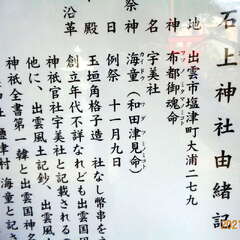 石上神社由緒記
地 出雲市塩津町大浦二七九
神 布都御魂命
名 宇美社
祭神 海童(和田津見命)
例祭 十一月九日
殿 玉垣角格子造 社なし幣串を
沿革 創立年代不詳なれども出雲国
神祇官社宇美社と記載される
他に、出雲風土記鈔、出雲風
神祇全書第一韓と出雲国神名
塩津村 海童と記さ
2021